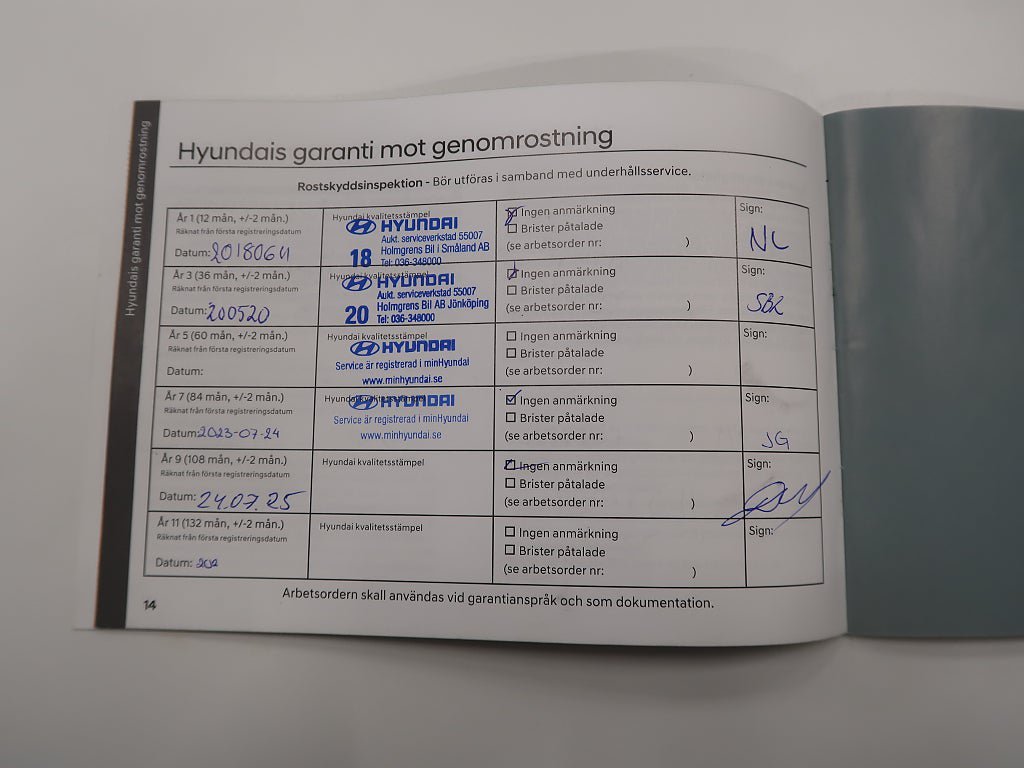 Hyundais garanti mot genomrostning
Hyundais garanti mot genomrostning
Rostskyddsinspektion - Bör utföras i samband med underhållsservice.
År 1 (12 mån, +/-2 mån.)
Räknat från första registreringsdatum
Datum:
Hyundai kvalitetsstämpel
HYUNDAI
Aukt. serviceverkstad 55007
18 Holmgrens Bil i Småland AB
Tel: 036-348000
Ingen anmärkning
Brister påtalade
(se arbetsorder nr: )
Sign:
NL
År 3 (36 mån, +/-2 mån.)
Räknat från första registreringsdatum
Datum: 200520
Hyundai kvalitetsstämpel
HYUNDAI
Aukt. serviceverkstad 55007
20 Holmgrens Bil AB Jönköping
Tel: 036-348000
Ingen anmärkning
Brister påtalade
(se arbetsorder nr: )
Sign:
SBK
År 5 (60 mån, +/-2 mån.)
Räknat från första registreringsdatum
Datum:
Hyundai kvalitetsstämpel
HYUNDAI
Service är registrerad i minHyundai
www.minhyundai.se
Ingen anmärkning
Brister påtalade
(se arbetsorder nr: )
Sign:
År 7 (84 mån, +/-2 mån.)
Räknat från första registreringsdatum
Datum: 2023-07-24
Hyundai kvalitetsstämpel
HYUNDAI
Service är registrerad i minHyundai
www.minhyundai.se
Ingen anmärkning
Brister påtalade
(se arbetsorder nr: )
Sign:
JG
År 9 (108 mån, +/-2 mån.)
Räknat från första registreringsdatum
Datum: 24.07.25
Hyundai kvalitetsstämpel
Ingen anmärkning
Brister påtalade
(se arbetsorder nr: )
Sign:
År 11 (132 mån, +/-2 mån.)
Räknat från första registreringsdatum
Datum: 202
Hyundai kvalitetsstämpel
Ingen anmärkning
Brister påtalade
(se arbetsorder nr: )
Sign:
Arbetsordern skall användas vid garantianspråk och som dokumentation.
14